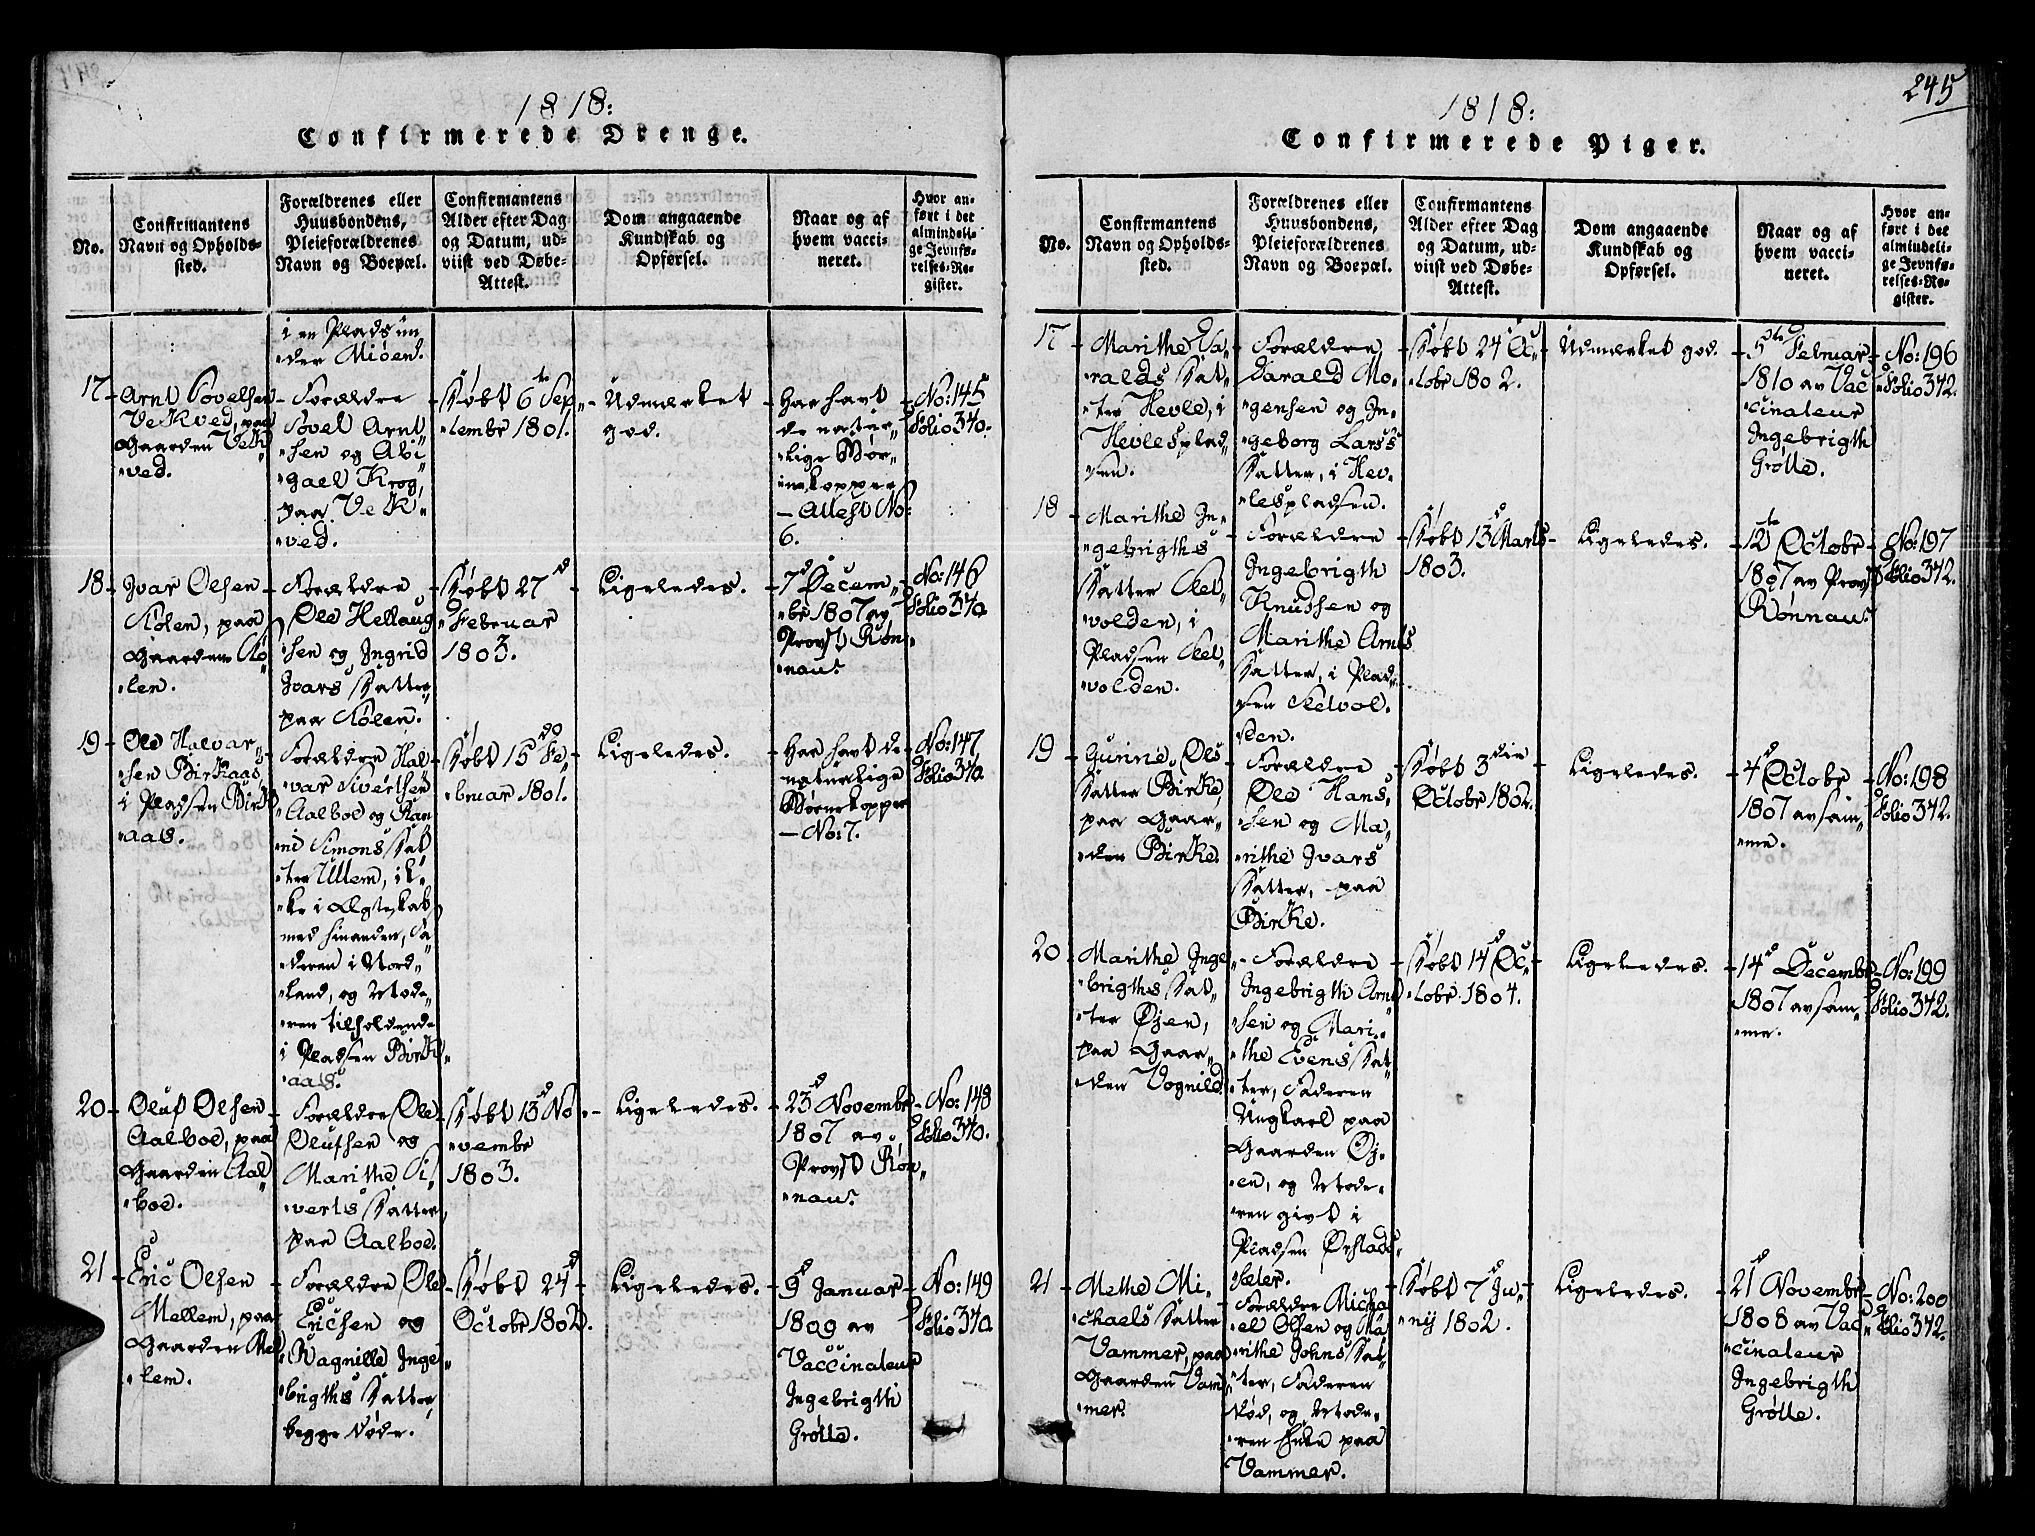 1818:
Confirmerede Drenge.
No.
Confirmantens
Navn og Opholds-
sted.
Forældrenes eller
Huusbondens,
Pleieforældrenes
Navn og Boepæl.
Confirmantens
Alder efter Dag
og Datum, ud-
viist ved Døbe-
Attest.
Dom angaaende
Kundskab og
Opførsel.
Naar og af
hvem vacci-
neret.
Hvor an-
ført i det
almindeli-
ge Jevnfø-
relses-Re-
gister.
i en Plads un
der Miøen.
17
Arnt Povelsen
Vekved, paa
Gaarden Vek
ved.
Forældre
Povel Arnt
sen og Abi
gael Krog,
paa Vek
ved.
Købt 6te Sep
tembr 1801.
Udmærket
god.
Har havt
de natur
lige Bør
nekopper
- Attest No:
6.
No: 145
Folio 370.
18
Ivar Olsen
Kølen, paa
Gaarden Kø
len.
Forældre
Ole Hellaug
sen og Ingrid
Ivars Datter
paa Kølen.
Købt 27d
Februar
1803.
Ligeledes.
7d Decem
br 1807 av
Provst Røn
nau.
No: 146
Folio 370
19
Ole Halvar
sen Birkaas
i Pladsen Birk
aas.
Forældre Hal
var Sivertsen
Aalboe og Ran
ni Simons Dat
ter Ullem, ik
ke i Ægteskab
med hinanden, Fa
deren i Nord
land, og Mode
ren tilholdende
i Pladsen Birk
aas.
Købt 15do Fe
bruar 1801.
Ligeledes.
Har havt de
naturlige
Børnekopper
- No: 7.
No: 147
Folio 370
20
Oluf Olsen
Aalboe, paa
Gaarden Aal
boe.
Forældre Ole
Olufsen og
Marithe Si
verts Datter,
paa Aalboe.
Købt 13d No
vembr
1803.
Ligeledes.
23d Novembr
1807 av
Provst Røn
nau.
No: 148
Folio 370.
21
Eric Olsen
Mellem, paa
Gaarden Mel
lem.
Forældre Ole
Ericsen og
Ragnille Inge
brigths Datter
begge døde.
Købt 24d
Octobr 1802.
Ligeledes.
9d Januar
1809 av
Vaccinateur
Ingebrigth
Grøtte.
No: 149
Folio 370
245
1818:
Confirmerede Piger.
No.
Confirmantens
Navn og Opholds-
sted.
Forældrenes eller
Huusbondens,
Pleieforældrenes
Navn og Boepæl.
Confirmantens
Alder efter Dag
og Datum, ud-
viist ved Døbe-
Attest.
Dom angaaende
Kundskab og
Opførsel.
Naar og af
hvem vacci-
neret.
Hvor an-
ført i det
almindeli-
ge Jevnfø-
relses-Re-
gister.
17
Marithe Da
ralds Dat
ter Hevle, i
Hevlesplad
sen.
Forældre
Darald Mo
gensen og In
geborg Lars
Datter, i Hev
lespladsen.
Købt 24d Oc
tobr 1802.
Udmærket god.
5te Februar
1810 av Vac
cinateur
Ingebrigth
Grøtte.
No: 196
Folio 372.
18
Marithe In
gebrigths
Datter
volden, i
Pladsen
volden.
Forældre
Ingebrigth
Knudsen og
Marithe Arnts
Datter, i Plad
sen
den.
Købt 13d Marts
1803.
Ligeledes.
12te Octobr
1807 av Provst
Rønnau.
No: 197
Folio 372.
19
Gurine Ols
Datter Birke,
paa Gaar
den Birke.
Forældre
Ole Hans
sen og Ma
rithe Ivars
Datter, paa
Birke.
Købt 3die
Octobr 1802.
Ligeledes.
4d Octobr
1807 av sam
me.
No: 198
Folio 372.
20
Marithe Inge
brigths Dat
ter Øjen,
paa Gaar
den Vognild.
Forældre
Ingebrigth Arnt
sen og Mari
the Evens Dat
ter, Faderen
Ungkarl paa
Gaarden Øj
en, og Mode
ren givt i
Pladsen Ørstads
sæter.
Købt 14d Oc
tobr 1804.
Ligeledes.
14d Decembr
1807 av sam
me.
No: 199
Folio 372.
21
Methe Mi
chaels Datter
Vammer, paa
Gaarden Vam
mer.
Forældre Micha
el Olsen og Ma
rithe Johns Dat
ter, Faderen
død, og Mode
ren Enke paa
Vammer.
Købt 7d Ju
nij 1802.
Ligeledes.
21d Novembr
1808 av Vac
cinateur
Ingebrigth
Grøtte.
No: 200
Folio 372.